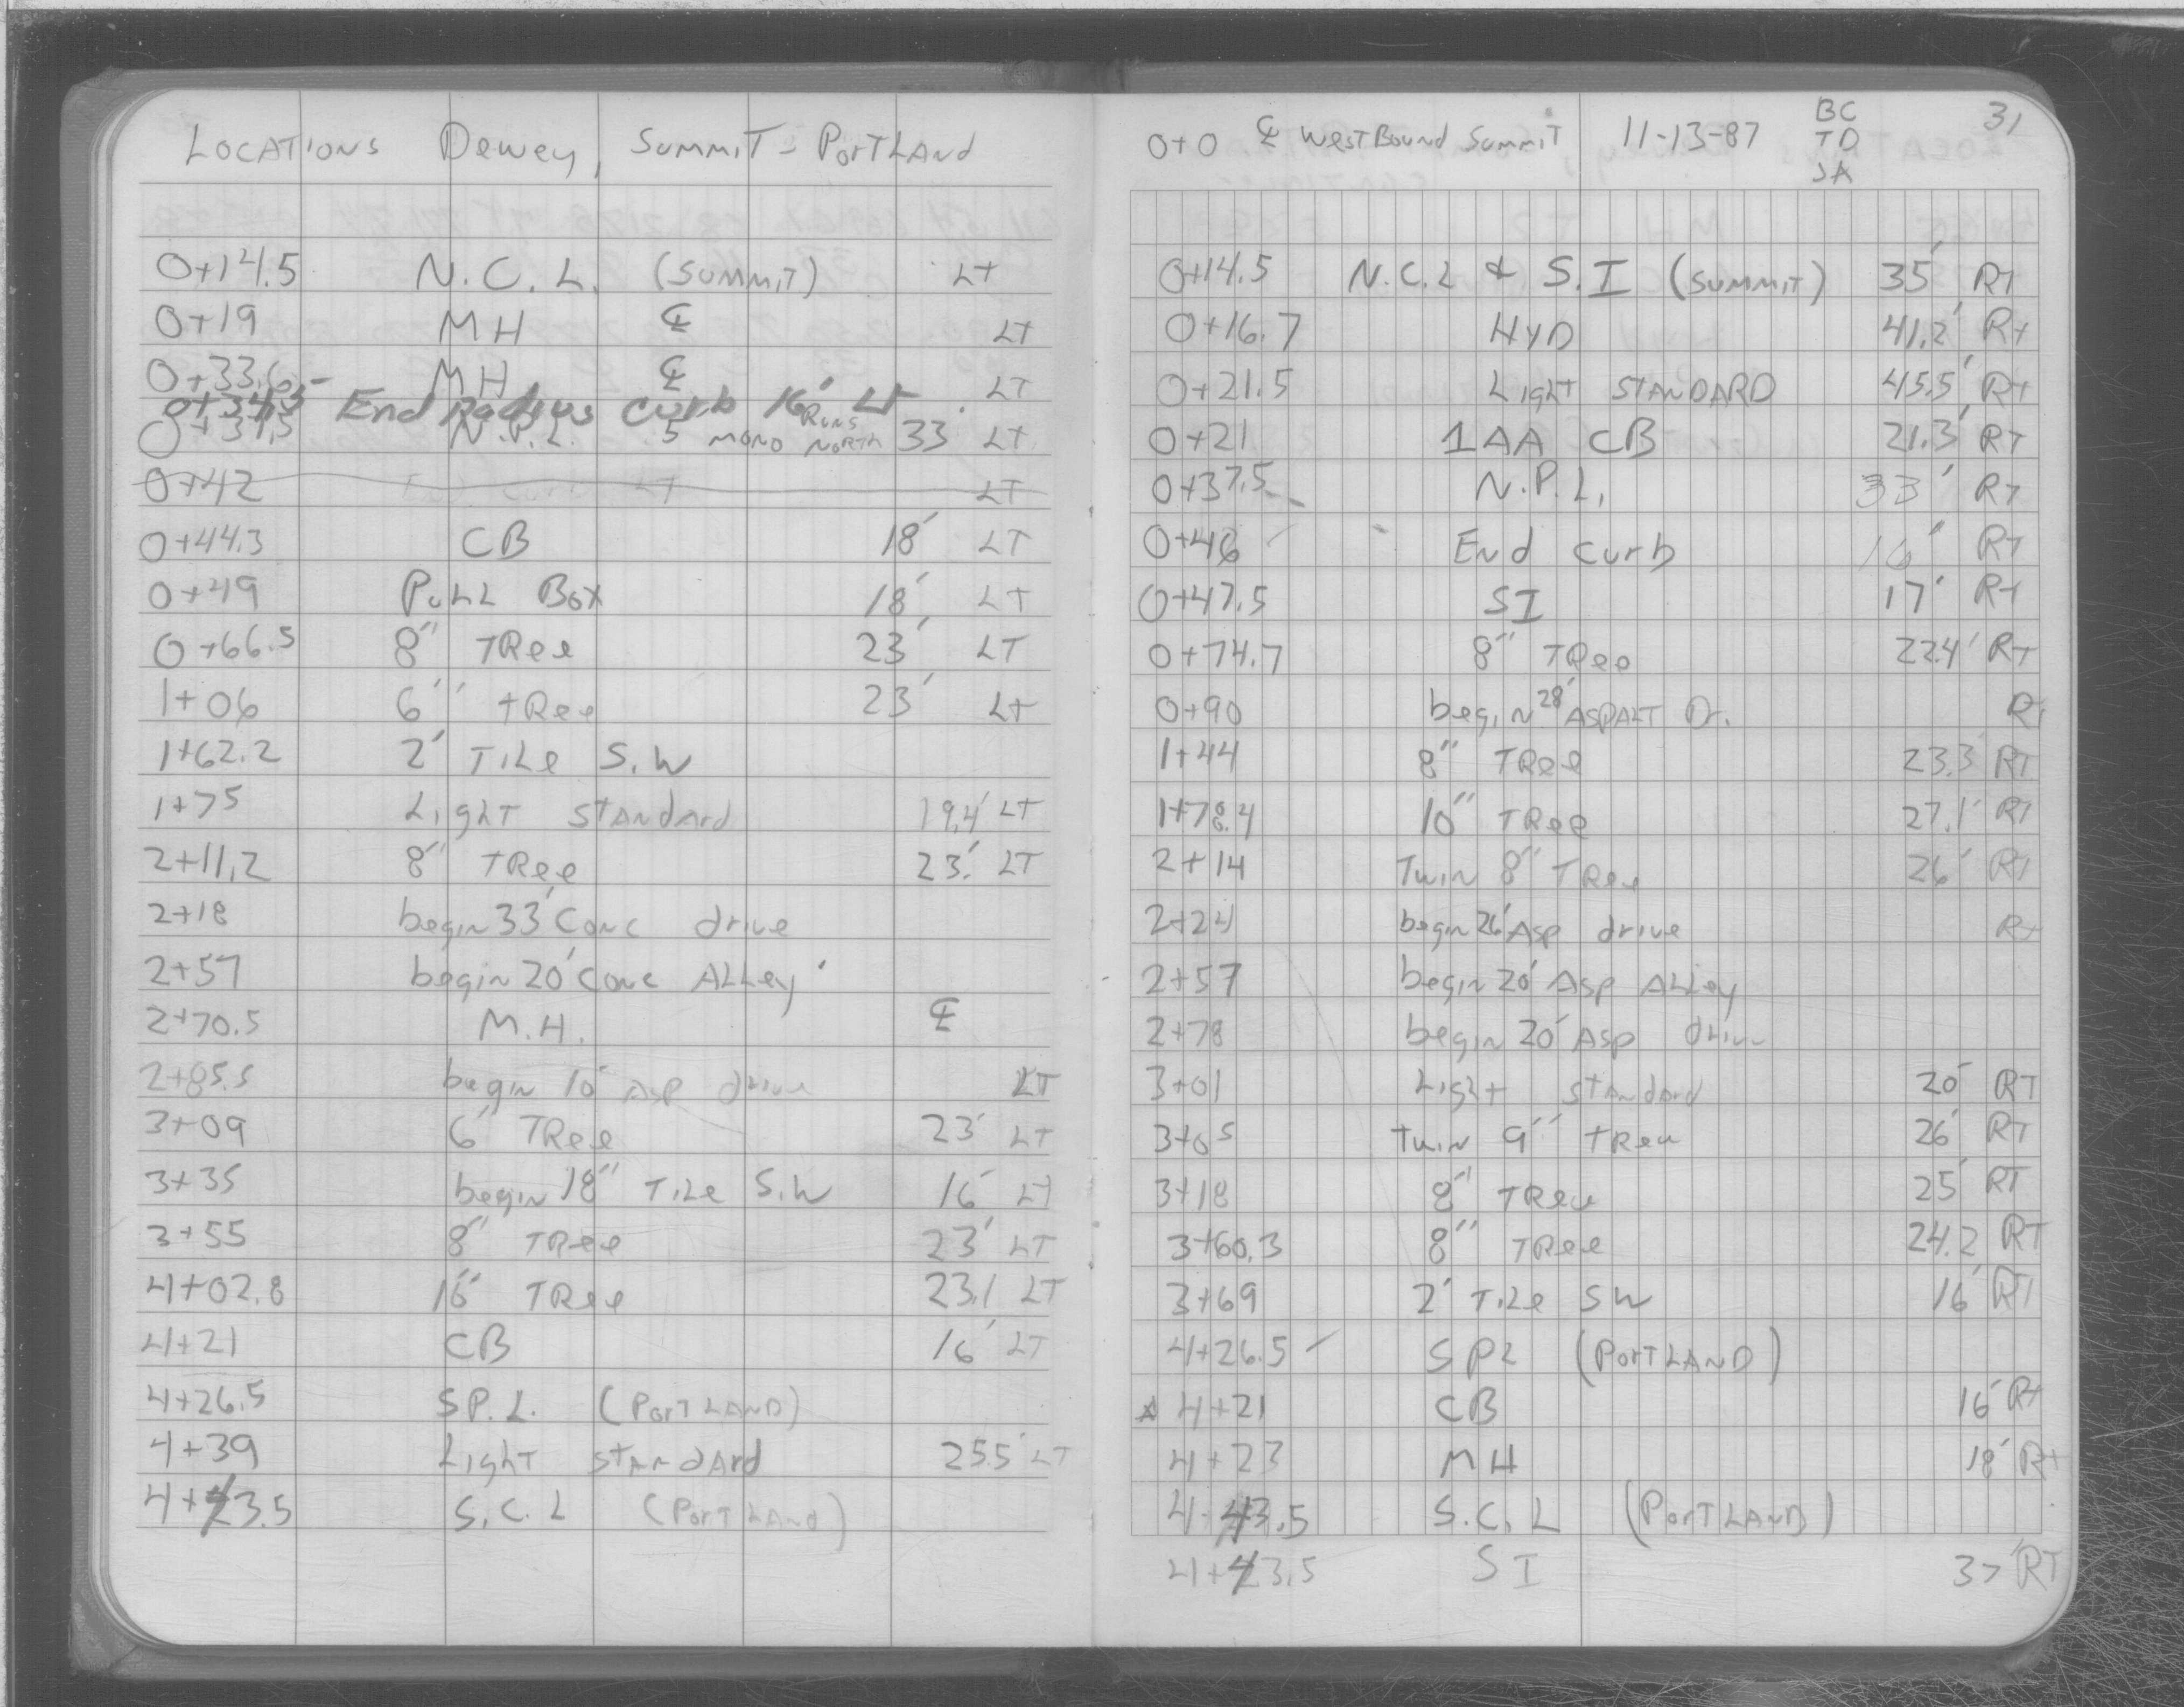 LOCATIONS Dewey, Summit - Portland
0+14.5 N.C.L. (Summit) LT
0+19 MH ℄ LT
0+33.6 MH ℄ LT
0+34.5 End Radius curb 16' LT
0+37.5 N.P.L. 5' mono Runs North 33' LT
0+42 LT
0+44.3 CB 18' LT
0+49 Pull Box 18' LT
0+66.5 8" Tree 23' LT
1+06 6" tree 23' LT
1+62.2 2' Tile S.W
1+75 Light standard 19.4' LT
2+11.2 8" Tree 23' LT
2+18 begin 33' Conc drive
2+57 begin 20' Conc Alley
2+70.5 M.H. ℄
2+85.5 begin 10' Asp drive LT
3+09 6" Tree 23' LT
3+35 begin 18" Tile S.W 16' LT
3+55 8" Tree 23' LT
4+02.8 16" Tree 23.1 LT
4+21 CB 16' LT
4+26.5 S.P.L. (Portland)
4+39 Light standard 25.5' LT
4+43.5 S.C.L (Portland)
0+0 ℄ WestBound Summit 11-13-87 BC TD JA 31
0+14.5 N.C.L & S.I (Summit) 35' RT
0+16.7 HYD 41.2' RT
0+21.5 Light STANDARD 45.5' RT
0+21 1AA CB 21.3' RT
0+37.5 N.P.L. 33' RT
0+46 End curb 16' RT
0+47.5 SI 17' RT
0+74.7 8" Tree 22.4' RT
0+90 begin 28' ASPALT Dr. RT
1+44 8" Tree 23.3' RT
1+78.4 10" Tree 27.1' RT
2+14 Twin 8" Tree 26' RT
2+24 begin 26' Asp drive RT
2+57 begin 20' Asp Alley
2+78 begin 20' Asp drive
3+01 Light standard 20' RT
3+05 Twin 9" Tree 26' RT
3+18 8" Tree 25' RT
3+60.3 8" Tree 24.2 RT
3+69 2' Tile SW 16' RT
4+26.5 SPL (Portland)
4+21 CB 16' RT
4+23 MH 18' RT
4+43.5 S.C.L (Portland)
4+43.5 SI 37' RT